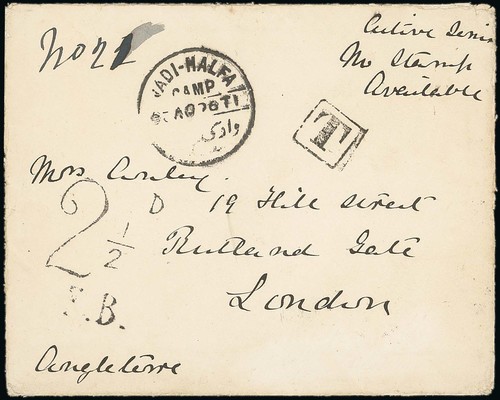 No 21
Active Service
No Stamp
Available
WADI-HALFA
CAMP
وادي
T
Mrs
19 Hill Street
Rutland Gate
London
2½ D
F.B.
Angleterre